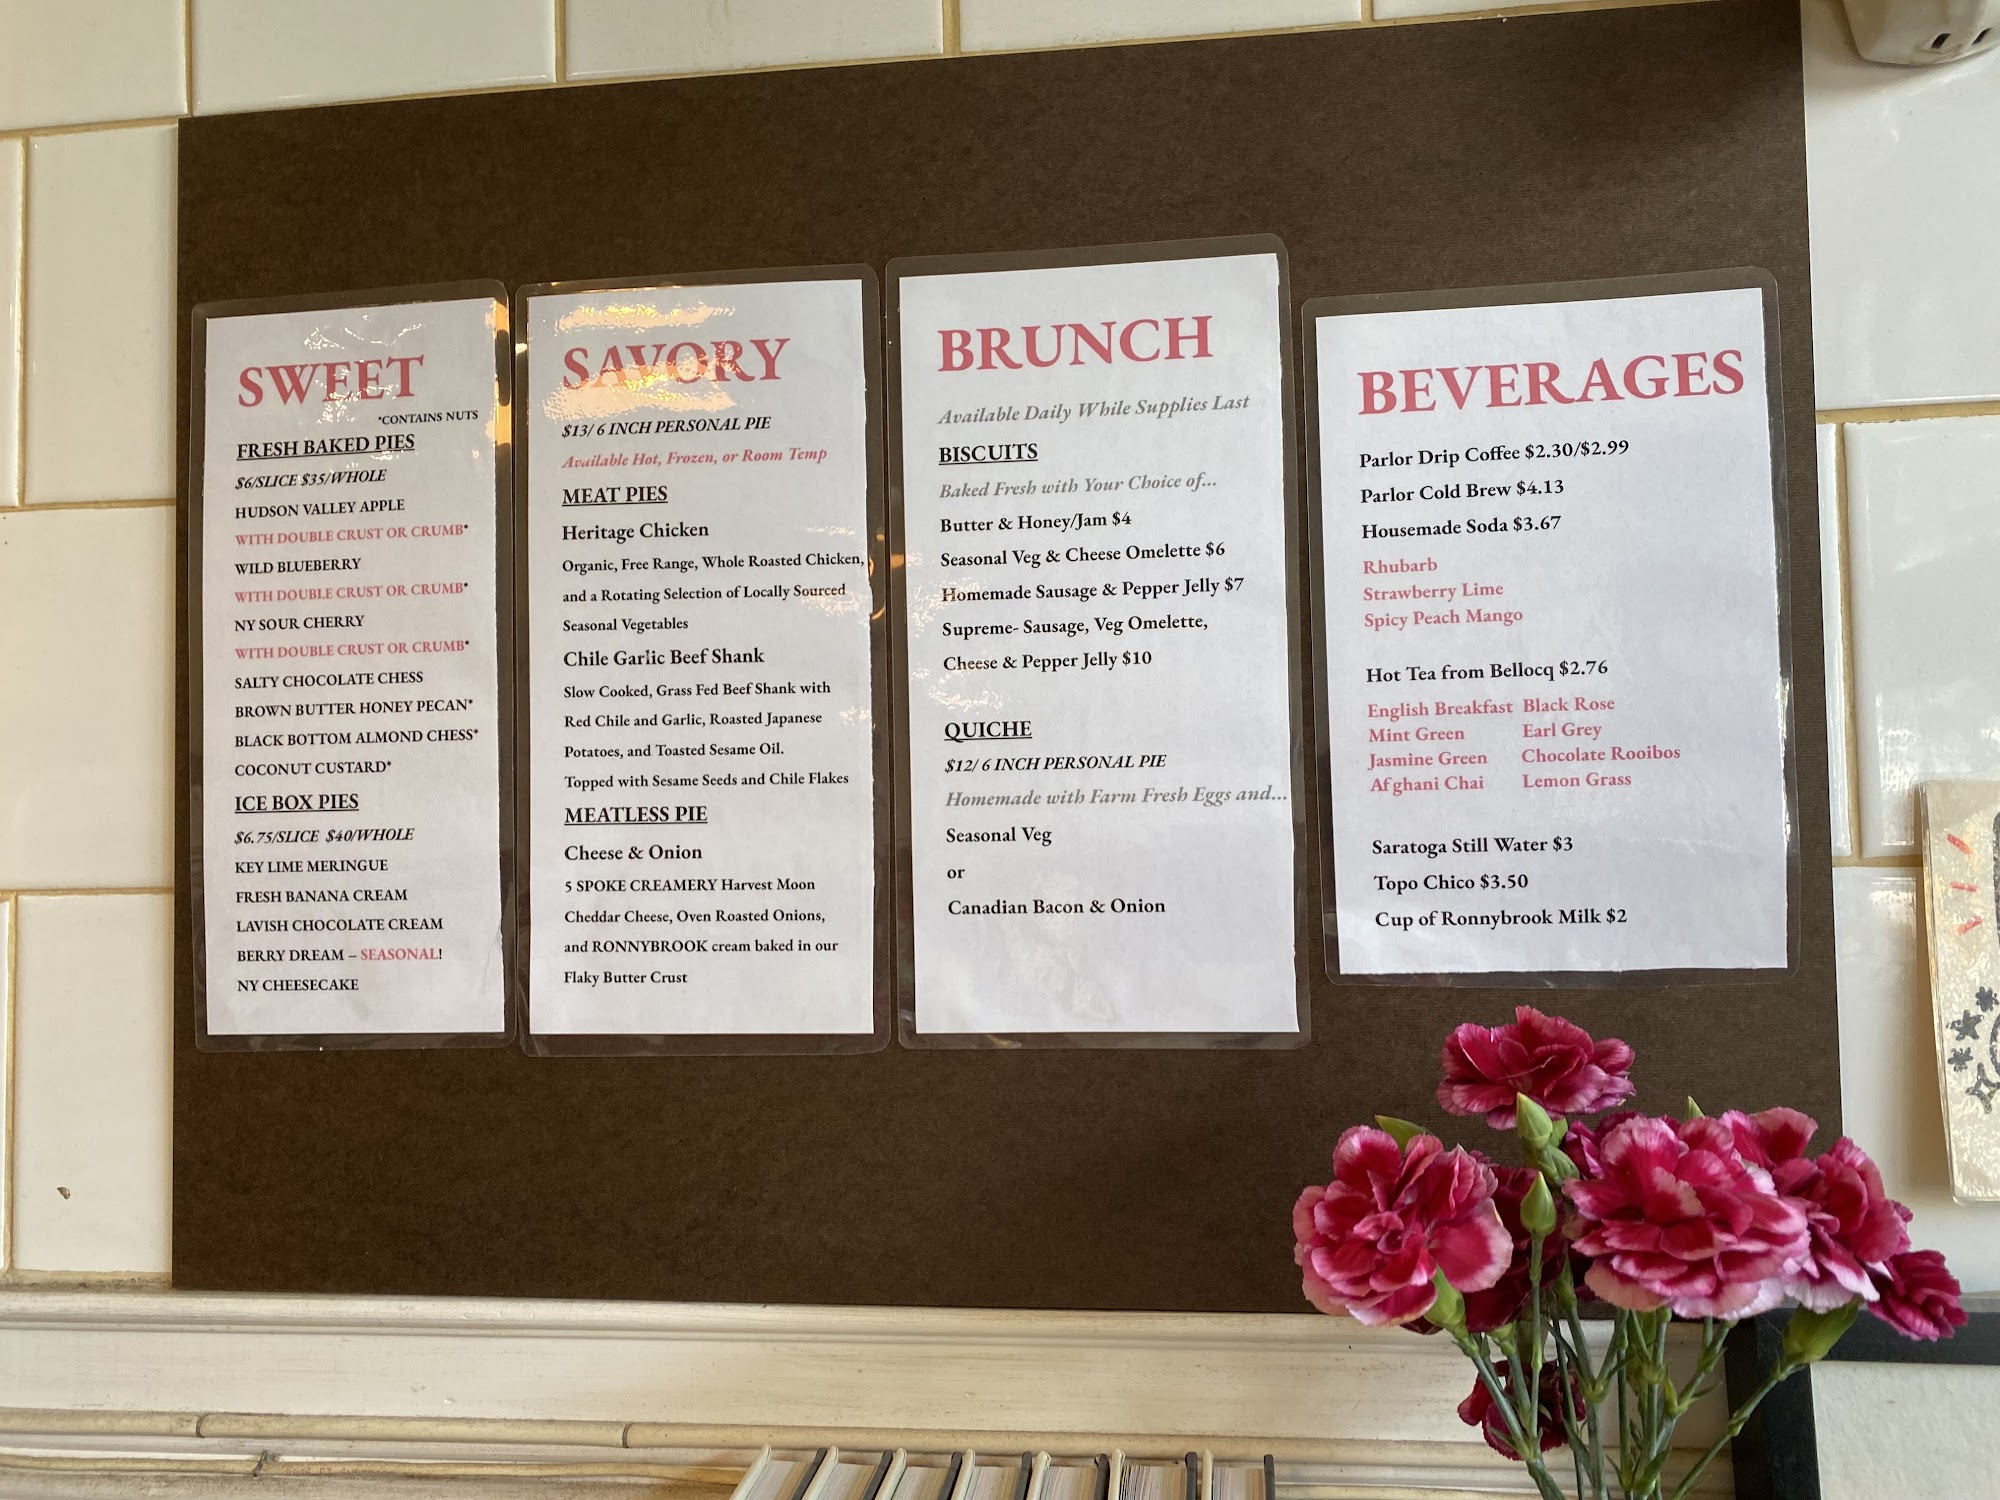 SWEET
*CONTAINS NUTS
FRESH BAKED PIES
$6/SLICE $35/WHOLE
HUDSON VALLEY APPLE
WITH DOUBLE CRUST OR CRUMB*
WILD BLUEBERRY
WITH DOUBLE CRUST OR CRUMB*
NY SOUR CHERRY
WITH DOUBLE CRUST OR CRUMB*
SALTY CHOCOLATE CHESS
BROWN BUTTER HONEY PECAN*
BLACK BOTTOM ALMOND CHESS*
COCONUT CUSTARD*
ICE BOX PIES
$6.75/SLICE $40/WHOLE
KEY LIME MERINGUE
FRESH BANANA CREAM
LAVISH CHOCOLATE CREAM
BERRY DREAM – SEASONAL!
NY CHEESECAKE
SAVORY
$13/ 6 INCH PERSONAL PIE
Available Hot, Frozen, or Room Temp
MEAT PIES
Heritage Chicken
Organic, Free Range, Whole Roasted Chicken,
and a Rotating Selection of Locally Sourced
Seasonal Vegetables
Chile Garlic Beef Shank
Slow Cooked, Grass Fed Beef Shank with
Red Chile and Garlic, Roasted Japanese
Potatoes, and Toasted Sesame Oil.
Topped with Sesame Seeds and Chile Flakes
MEATLESS PIE
Cheese & Onion
5 SPOKE CREAMERY Harvest Moon
Cheddar Cheese, Oven Roasted Onions,
and RONNYBROOK cream baked in our
Flaky Butter Crust
BRUNCH
Available Daily While Supplies Last
BISCUITS
Baked Fresh with Your Choice of...
Butter & Honey/Jam $4
Seasonal Veg & Cheese Omelette $6
Homemade Sausage & Pepper Jelly $7
Supreme- Sausage, Veg Omelette,
Cheese & Pepper Jelly $10
QUICHE
$12/ 6 INCH PERSONAL PIE
Homemade with Farm Fresh Eggs and...
Seasonal Veg
or
Canadian Bacon & Onion
BEVERAGES
Parlor Drip Coffee $2.30/$2.99
Parlor Cold Brew $4.13
Housemade Soda $3.67
Rhubarb
Strawberry Lime
Spicy Peach Mango
Hot Tea from Bellocq $2.76
English Breakfast Black Rose
Mint Green Earl Grey
Jasmine Green Chocolate Rooibos
Afghani Chai Lemon Grass
Saratoga Still Water $3
Topo Chico $3.50
Cup of Ronnybrook Milk $2